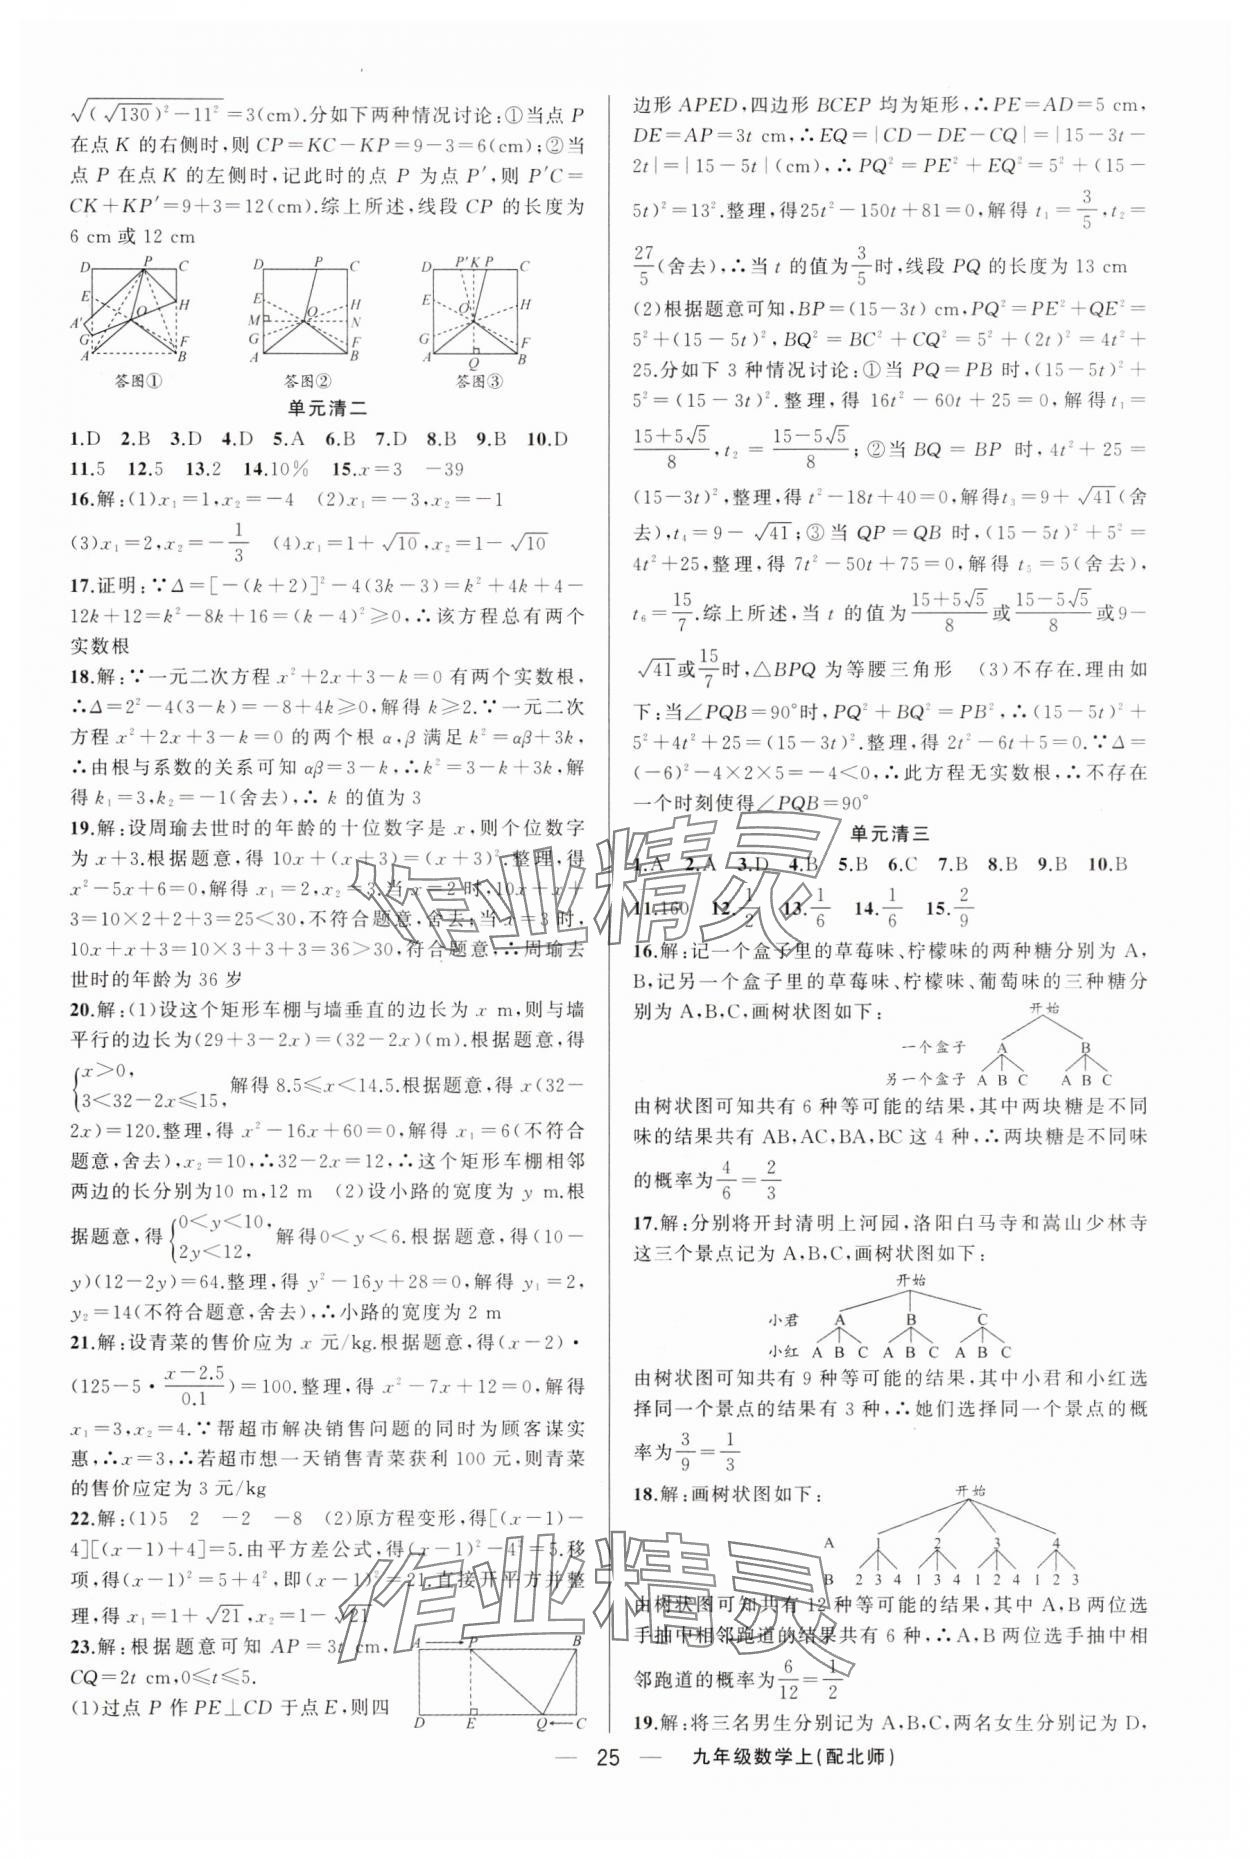 √((√130)²－11²)＝3(cm).分如下两种情况讨论:①当点 P
在点 K 的右侧时,则 CP＝KC－KP＝9－3＝6(cm);②当
点 P 在点 K 的左侧时,记此时的点 P 为点 P′,则 P′C＝
CK＋KP′＝9＋3＝12(cm).综上所述,线段 CP 的长度为
6 cm 或 12 cm
D P C E O H A′ G F A B
D P C E H M O N G F A B
D P′ K P C E H O G F A Q B
答图① 答图② 答图③
单元清二
1.D 2.B 3.D 4.D 5.A 6.B 7.D 8.B 9.B 10.D
11.5 12.5 13.2 14.10% 15.x＝3 －39
16.解:(1)x₁＝1,x₂＝－4 (2)x₁＝－3,x₂＝－1
(3)x₁＝2,x₂＝－1/3 (4)x₁＝1＋√10,x₂＝1－√10
17.证明:∵Δ＝[－(k＋2)]²－4(3k－3)＝k²＋4k＋4－
12k＋12＝k²－8k＋16＝(k－4)²≥0,∴该方程总有两个
实数根
18.解:∵一元二次方程 x²＋2x＋3－k＝0 有两个实数根,
∴Δ＝2²－4(3－k)＝－8＋4k≥0,解得 k≥2.∵一元二次
方程 x²＋2x＋3－k＝0 的两个根 α,β 满足 k²＝αβ＋3k,
∴由根与系数的关系可知 αβ＝3－k,∴k²＝3－k＋3k,解
得 k₁＝3,k₂＝－1(舍去),∴ k 的值为 3
19.解:设周瑜去世时的年龄的十位数字是 x,则个位数字
为 x＋3.根据题意,得 10x＋(x＋3)＝(x＋3)².整理,得
x²－5x＋6＝0,解得 x₁＝2,x₂＝3.当 x＝2 时,10x＋x＋
3＝10×2＋2＋3＝25＜30,不符合题意,舍去;当 x＝3 时,
10x＋x＋3＝10×3＋3＋3＝36＞30,符合题意,∴周瑜去
世时的年龄为 36 岁
20.解:(1)设这个矩形车棚与墙垂直的边长为 x m,则与墙
平行的边长为(29＋3－2x)＝(32－2x)(m).根据题意,得
{x＞0, 3＜32－2x≤15, 解得 8.5≤x＜14.5.根据题意,得 x(32－
2x)＝120.整理,得 x²－16x＋60＝0,解得 x₁＝6(不符合
题意,舍去),x₂＝10,∴32－2x＝12,∴这个矩形车棚相邻
两边的长分别为10 m,12 m (2)设小路的宽度为 y m.根
据题意,得{0＜y＜10, 2y＜12, 解得0＜y＜6.根据题意,得(10－
y)(12－2y)＝64.整理,得 y²－16y＋28＝0,解得 y₁＝2,
y₂＝14(不符合题意,舍去),∴小路的宽度为 2 m
21.解:设青菜的售价应为 x 元/kg.根据题意,得(x－2)·
(125－5·(x－2.5)/0.1)＝100.整理,得 x²－7x＋12＝0,解得
x₁＝3,x₂＝4.∵帮超市解决销售问题的同时为顾客谋实
惠,∴x＝3,∴若超市想一天销售青菜获利 100 元,则青菜
的售价应定为 3 元/kg
22.解:(1)5 2 －2 －8 (2)原方程变形,得[(x－1)－
4][(x－1)＋4]＝5.由平方差公式,得(x－1)²－4²＝5.移
项,得(x－1)²＝5＋4²,即(x－1)²＝21.直接开平方并整
理,得 x₁＝1＋√21,x₂＝1－√21
23.解:根据题意可知 AP＝3t cm,
CQ＝2t cm,0≤t≤5.
(1)过点 P 作 PE⊥CD 于点 E,则四
A P B D E Q C
边形 APED,四边形 BCEP 均为矩形,∴PE＝AD＝5 cm,
DE＝AP＝3t cm,∴EQ＝|CD－DE－CQ|＝|15－3t－
2t|＝|15－5t|(cm),∴PQ²＝PE²＋EQ²＝5²＋(15－
5t)²＝13².整理,得25t²－150t＋81＝0,解得 t₁＝3/5,t₂＝
27/5(舍去),∴当 t 的值为3/5时,线段 PQ 的长度为 13 cm
(2)根据题意可知,BP＝(15－3t) cm,PQ²＝PE²＋QE²＝
5²＋(15－5t)²,BQ²＝BC²＋CQ²＝5²＋(2t)²＝4t²＋
25.分如下 3 种情况讨论:①当 PQ＝PB 时,(15－5t)²＋
5²＝(15－3t)².整理,得 16t²－60t＋25＝0,解得 t₁＝
(15＋5√5)/8,t₂＝(15－5√5)/8;②当 BQ＝BP 时,4t²＋25＝
(15－3t)²,整理,得 t²－18t＋40＝0,解得t₃＝9＋√41(舍
去),t₄＝9－√41;③当 QP＝QB 时,(15－5t)²＋5²＝
4t²＋25,整理,得 7t²－50t＋75＝0,解得 t₅＝5(舍去),
t₆＝15/7.综上所述,当 t 的值为(15＋5√5)/8或(15－5√5)/8或9－
√41或15/7时,△BPQ 为等腰三角形 (3)不存在.理由如
下:当∠PQB＝90°时,PQ²＋BQ²＝PB²,∴(15－5t)²＋
5²＋4t²＋25＝(15－3t)².整理,得 2t²－6t＋5＝0.∵Δ＝
(－6)²－4×2×5＝－4＜0,∴此方程无实数根,∴不存在
一个时刻使得∠PQB＝90°
单元清三
1.A 2.A 3.D 4.B 5.B 6.C 7.B 8.B 9.B 10.B
11.160 12.1/2 13.1/6 14.1/6 15.2/9
16.解:记一个盒子里的草莓味、柠檬味的两种糖分别为 A,
B,记另一个盒子里的草莓味、柠檬味、葡萄味的三种糖分
别为 A,B,C,画树状图如下:
开始
一个盒子 A B
另一个盒子 A B C A B C
由树状图可知共有 6 种等可能的结果,其中两块糖是不同
味的结果共有 AB,AC,BA,BC 这 4 种,∴两块糖是不同味
的概率为4/6＝2/3
17.解:分别将开封清明上河园,洛阳白马寺和嵩山少林寺
这三个景点记为 A,B,C,画树状图如下:
开始
小君 A B C
小红 A B C A B C A B C
由树状图可知共有 9 种等可能的结果,其中小君和小红选
择同一个景点的结果有 3 种,∴她们选择同一个景点的概
率为3/9＝1/3
18.解:画树状图如下:
开始
A 1 2 3 4
B 2 3 4 1 3 4 1 2 4 1 2 3
由树状图可知共有 12 种等可能的结果,A,B 两位选
手抽中相邻跑道的结果共有 6 种,∴A,B 两位选手抽中相
邻跑道的概率为6/12＝1/2
19.解:将三名男生分别记为 A,B,C,两名女生分别记为 D,
— 25 — 九年级数学上(配北师)
作业精灵
作业精灵